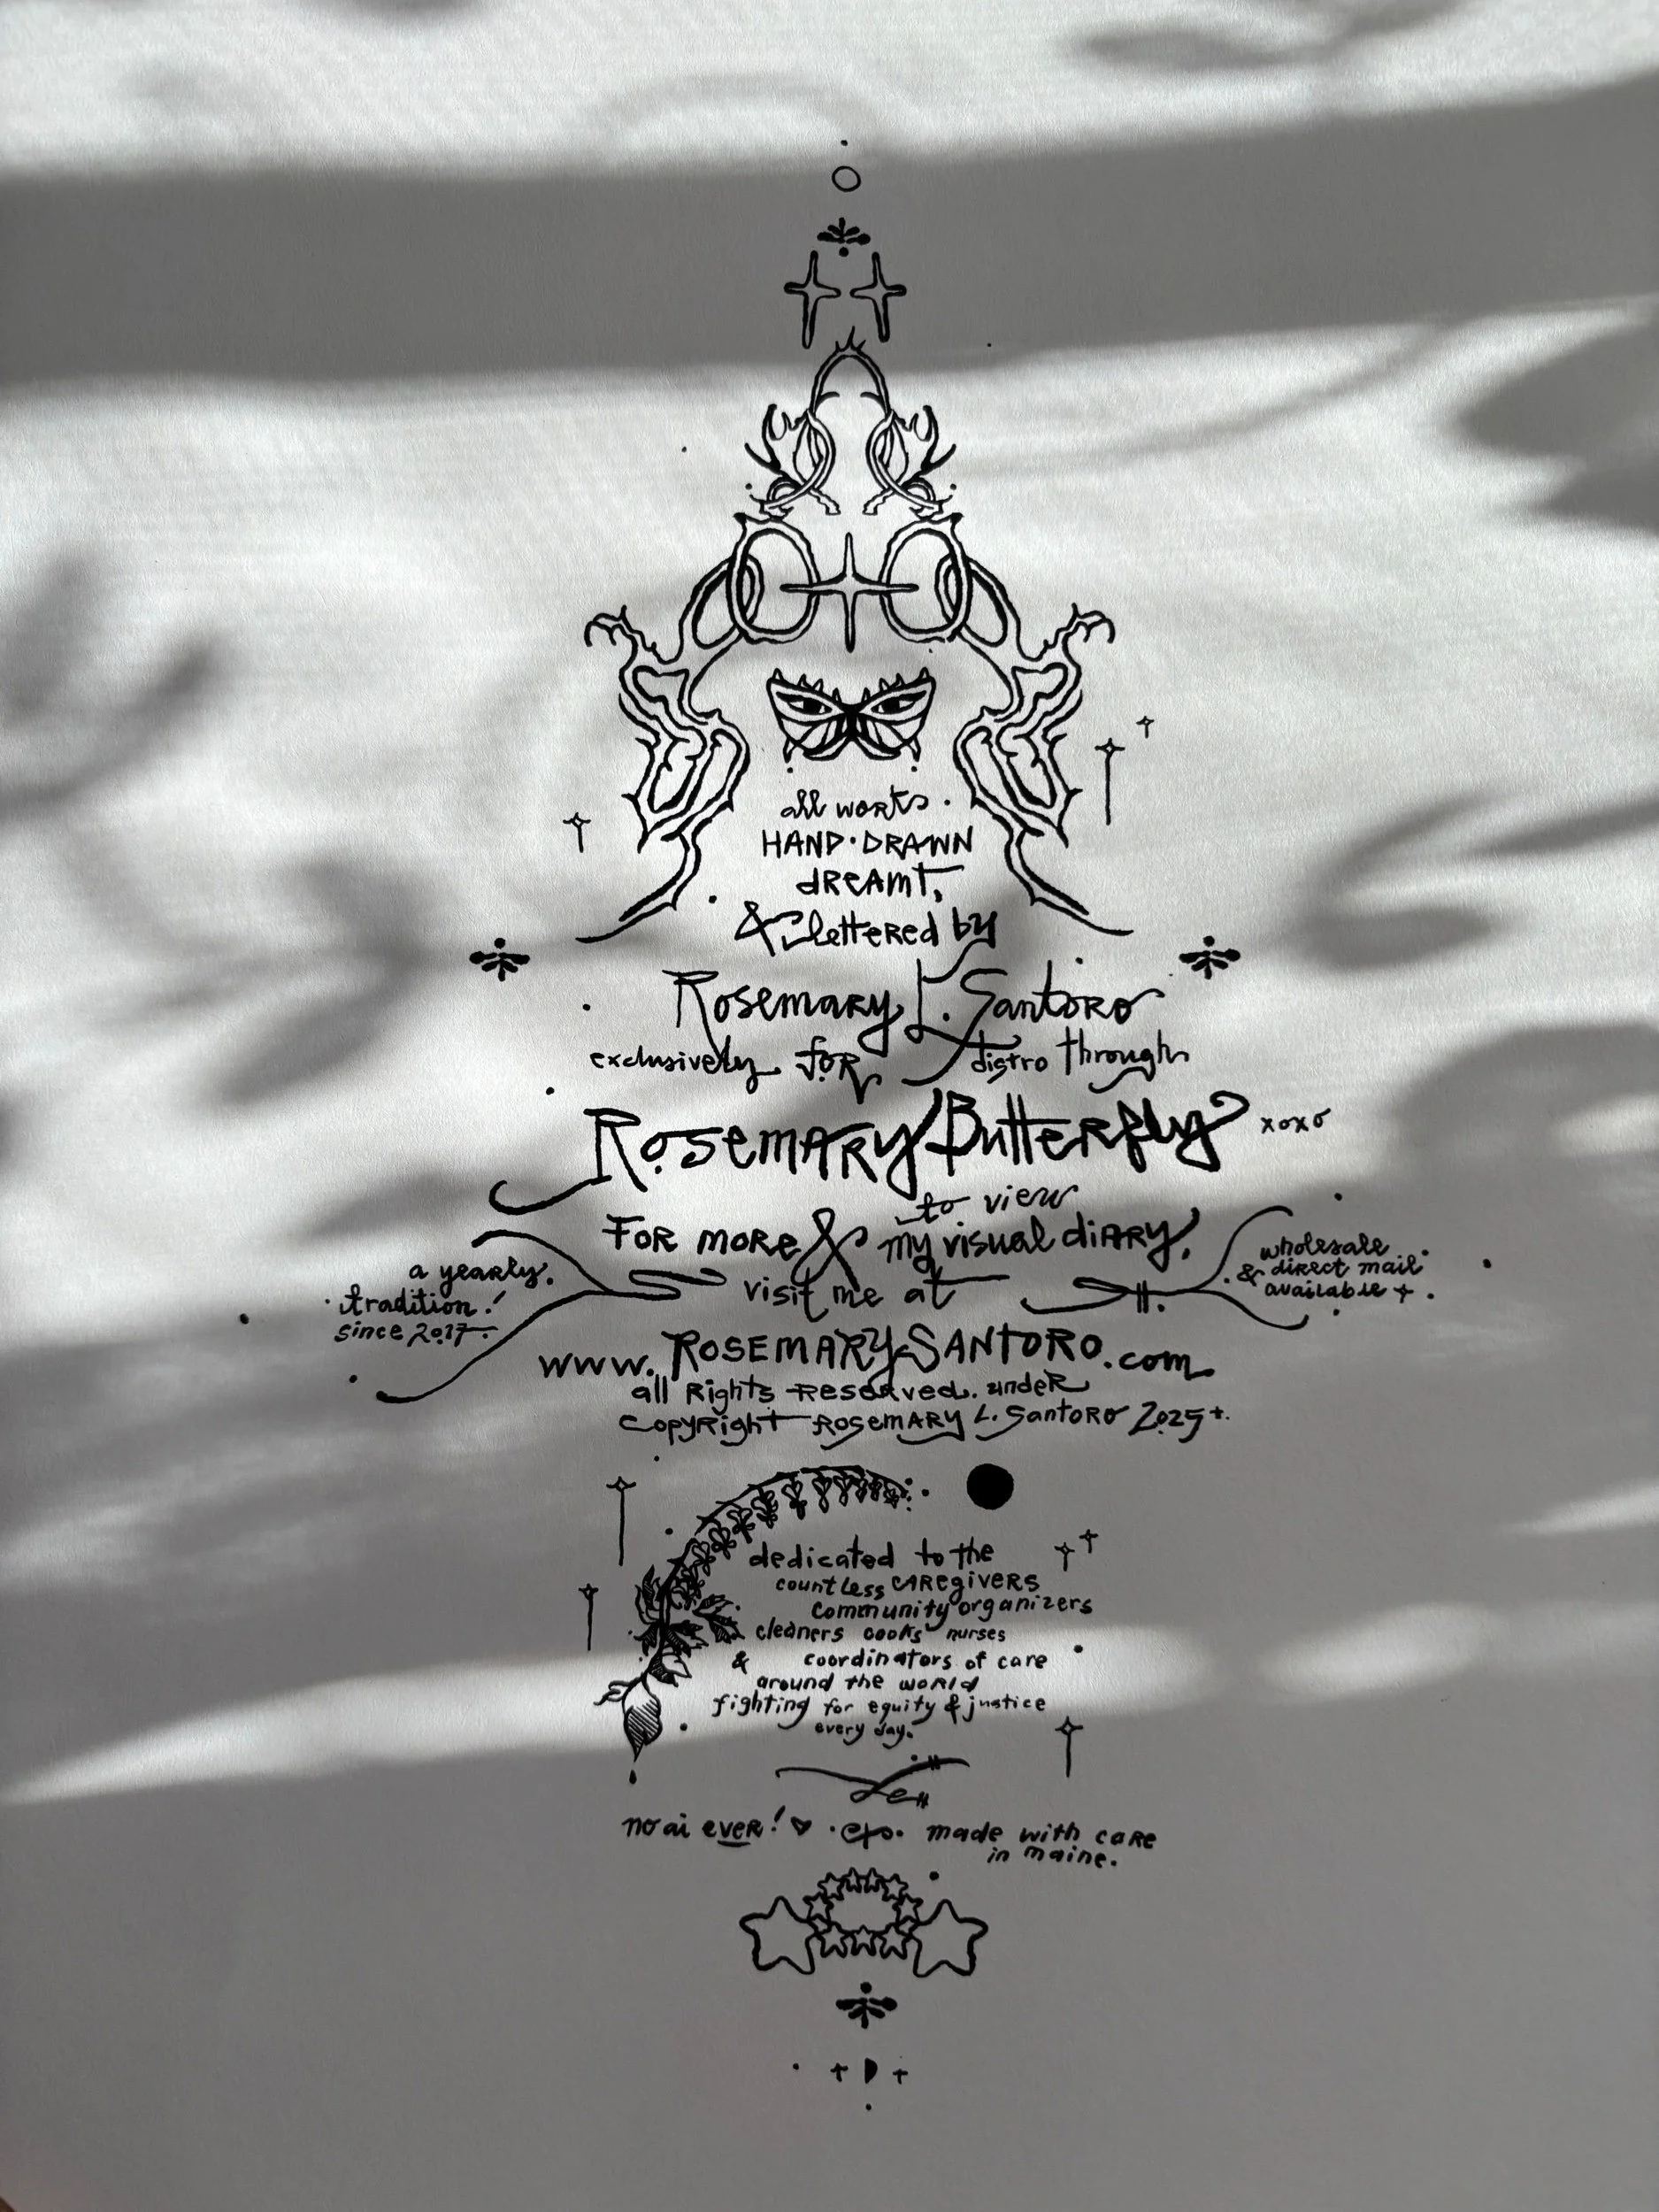 all works
HAND·DRAWN
dREAMT,
& lettered by
Rosemary L. Santoro
exclusively FOR distro through
ROSEMARY Butterfly xoxo
FOR more & to view
my visual diARY,
visit me at
a yearly
tradition!
since 2017
wholesale
& direct mail
available +
www.ROSEMARYSANTORO.com
all Rights Reserved. under
CopyRight ROSEMARY L. SantoRO 2025+.
dedicated to the
countless CAREgiVERS
community organizers
cleaners cooks nurses
& coordinators of care
around the world
fighting for equity & justice
every day.
no ai eveR! made with caRe
in maine.